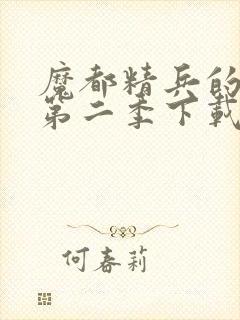 魔都精兵的
第二季下載
何春莉